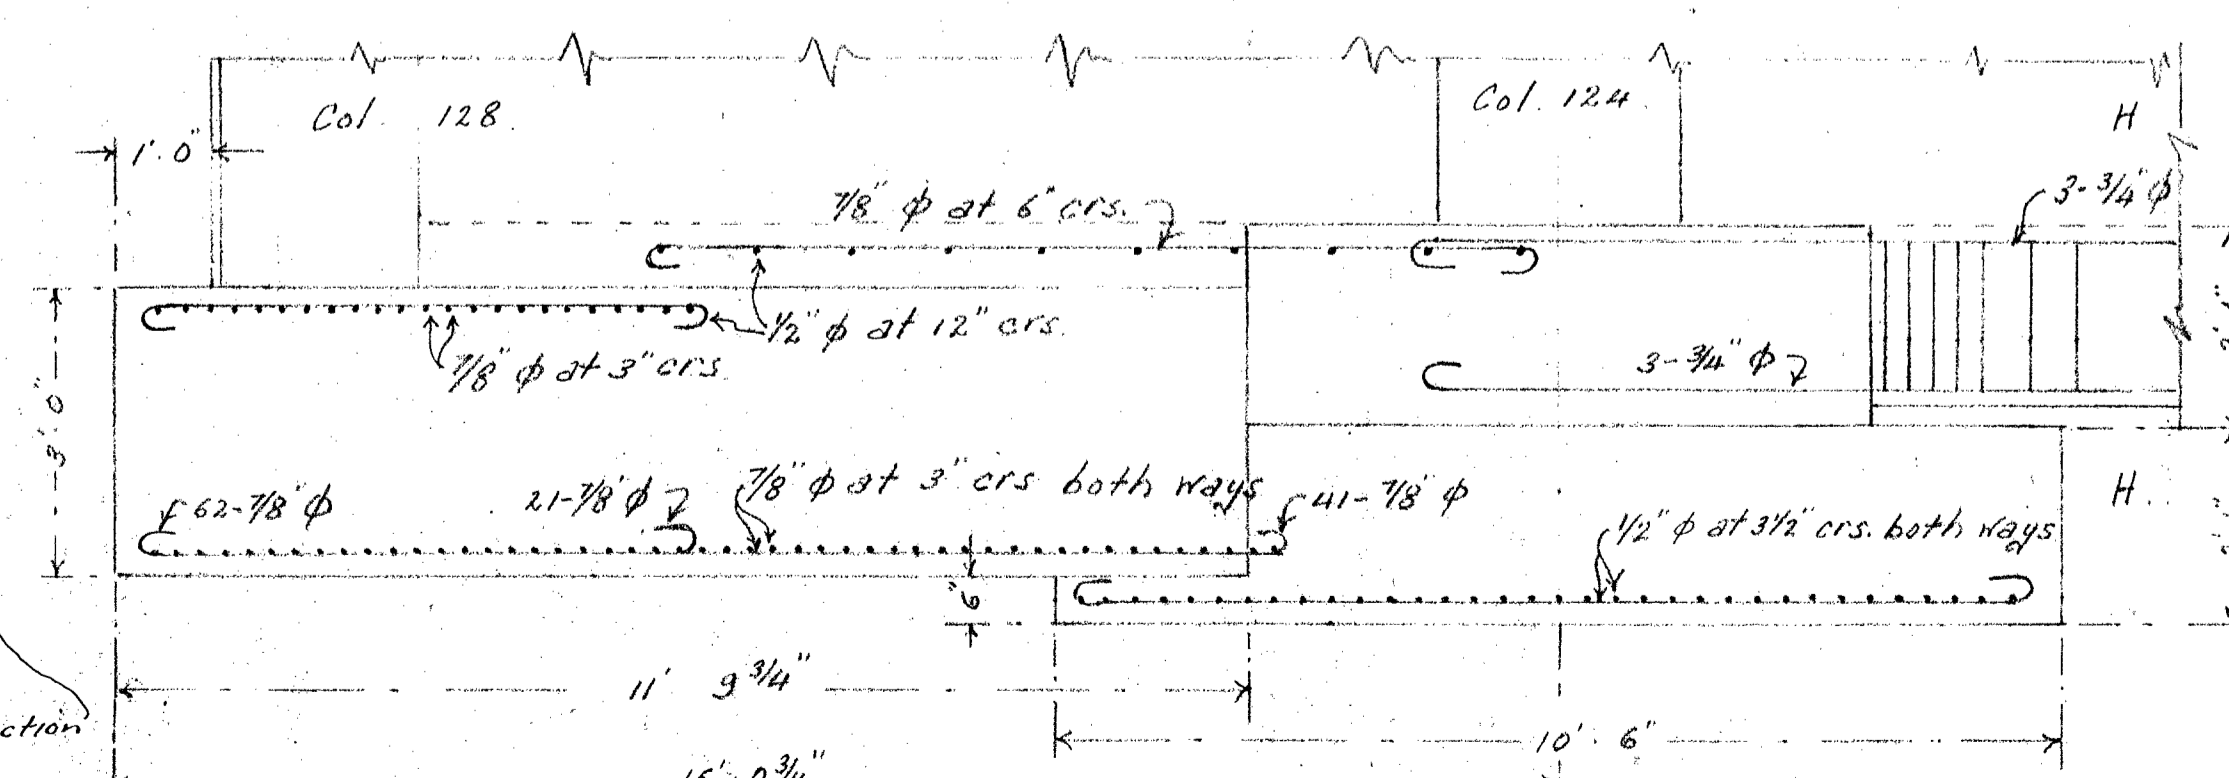 Col. 128
Col. 124
H
1'.0"
3-3/4" ϕ
7/8" ϕ at 6" crs.
1/2" ϕ at 12" crs.
7/8" ϕ at 3" crs.
3-3/4" ϕ
3'.0"
62-7/8" ϕ
21-7/8" ϕ
7/8" ϕ at 3" crs both ways
41-7/8" ϕ
H.
1/2" ϕ at 3 1/2" crs. both ways
6"
11' 9 3/4"
ction
10'. 6"